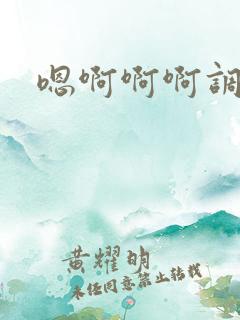 嗯啊啊啊調
黄耀明
未经同意禁止转载